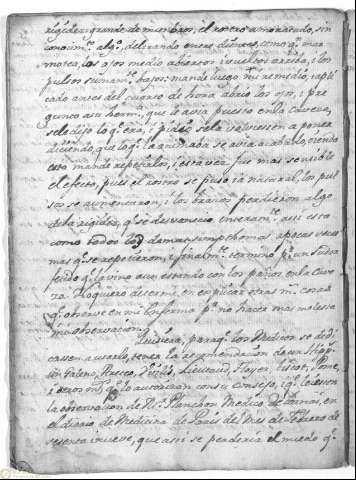 rigidez grande de miembros, el rostro amoratado, sin
conocimto algo, delirando entre dientes, como qe mar
motea, los ojos medio abiertos i vueltos arriba, i los
pulsos sumamte bajos: mande luego mi remedio, i apli
cado antes del cuarto de hora abrio los ojos, i pre
gunto a su hermo que le avia puesto en la caveza,
se le dijo lo qe era, i pidio se la volviesen a poner
diciendo, que lo qe la quedaba se avia acabado, viendo
esto mande repetirlos, i esta vez fue mas sensible
el efecto, pues el rostro se puso ia natural, los pul
sos se aumentaron, i los brazos perdieron algo
de la rigidez, qe se desvanecio enteramte: asi esto
como todos los demas symptomas a pocas veces
mas qe se repetieron, i finalmte termino pr un sudor
qe la vino aun estando con los paños en la cave
za. No quiero detenerme en explicar otras ms cosas
qe observe en mi enferma pr no hacer mas molesta
mi observacion.
Quisiera, para qe los Medicos se dedi
casen a usarlo, tener la recomendacion de un Hipp
Galeno, Areteo, Lieutaud, Tissot,
i otros qe lo autorizan con su consejo, i qe leiesen
la observacion de Mr. Planchon Medico de Tornai, en
el diario de Medicina de Paris del mes de Febrero de
sesenta i nueve, que asi se perderia el miedo qe